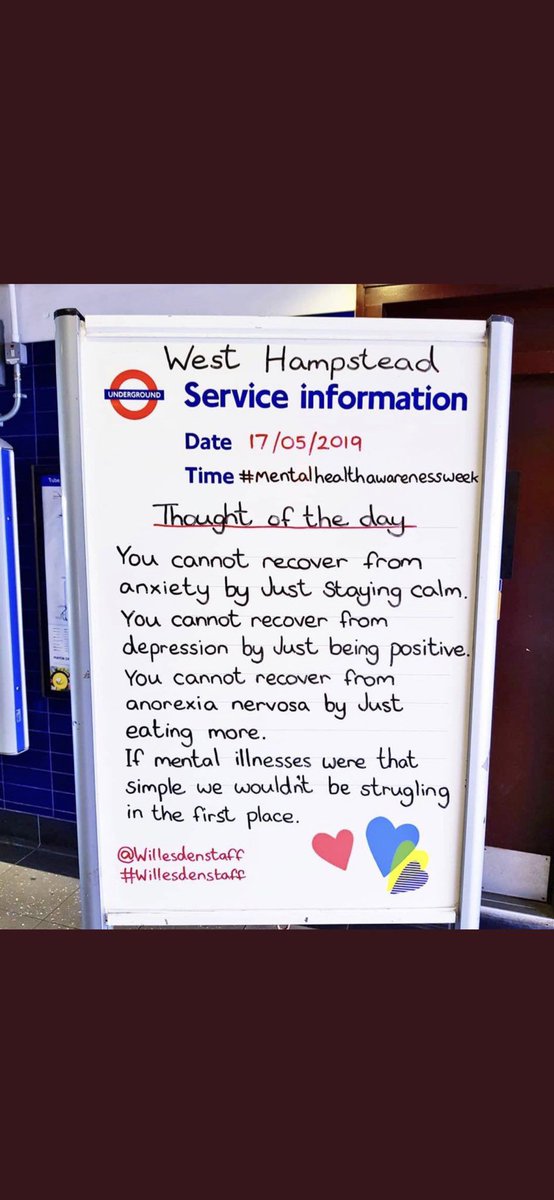 West Hampstead
UNDERGROUND
Service information
Date 17/05/2019
Time #mentalhealthawarenessweek
Thought of the day
You cannot recover from
anxiety by Just staying calm.
You cannot recover from
depression by Just being positive.
You cannot recover from
anorexia nervosa by Just
eating more.
If mental illnesses were that
simple we wouldn't be strugling
in the first place.
@Willesdenstaff
#Willesdenstaff